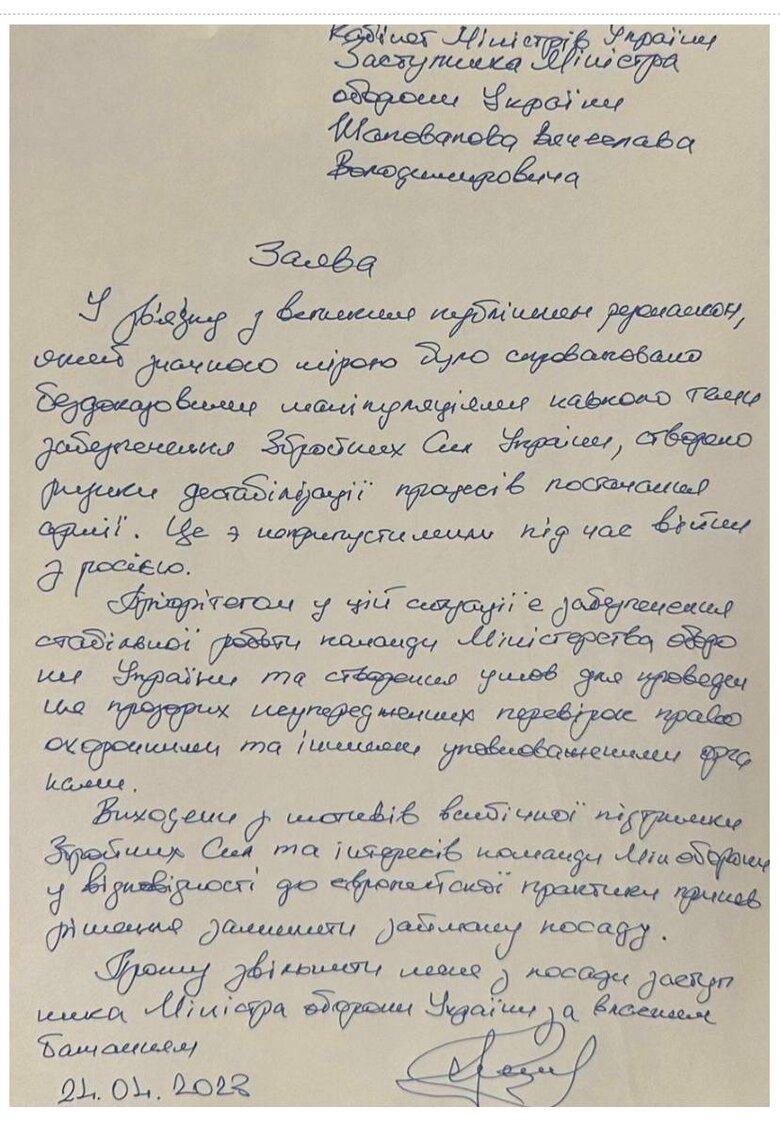 Кабінет Міністрів України
Заступника Міністра
оборони України
Шаповалова Вячеслава
Володимировича
Заява
У зв'язку з великим публічним резонансом,
який значною мірою було спровоковано
бездоказовими маніпуляціями навколо теми
забезпечення Збройних Сил України, створено
ризики дестабілізації процесів постачання
армії. Це є неприпустимим під час війни
з росією.
Пріорітетом у цій ситуації є забезпечення
стабільної роботи команди Міністерства оборо
ни України та створення умов для проведен
ня прозорих неупереджених перевірок право
охоронними та іншими уповноваженими орга
нами.
Виходячи з мотивів всебічної підтримки
Збройних Сил та інтересів команди Міноборони
у відповідності до європейської практики прийняв
рішення залишити займану посаду.
Прошу звільнити мене з посади заступ
ника Міністра оборони України за власним
бажанням
24.01.2023